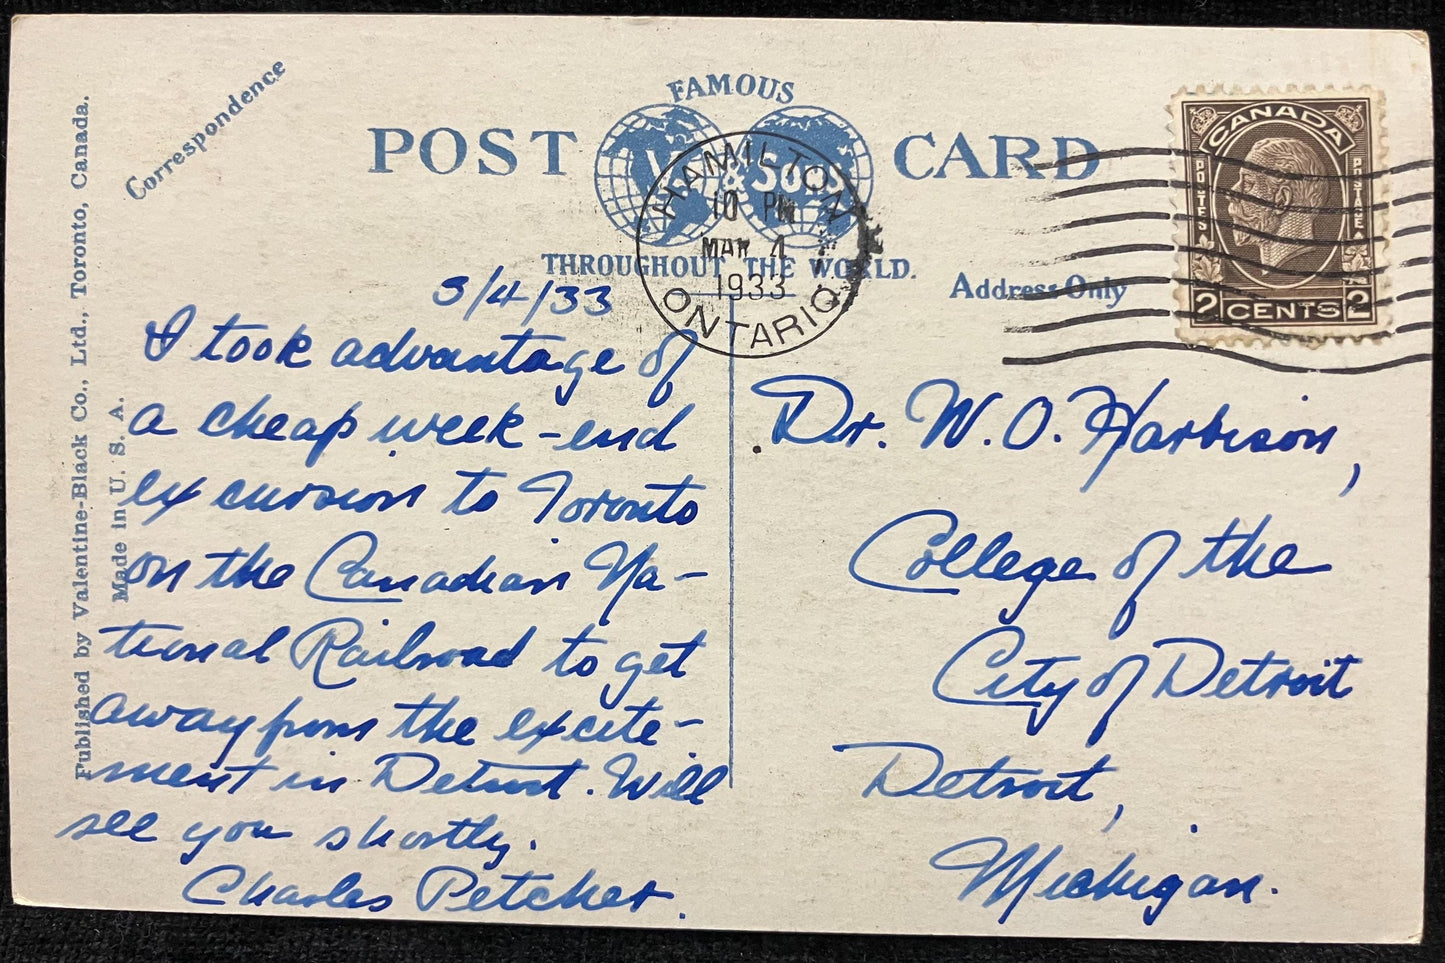 Correspondence
FAMOUS
POST CARD
V. & Sons
THROUGHOUT THE WORLD.
Address Only
HAMILTON
10 PM
MAR 4
1933
ONTARIO
CANADA
POSTES
POSTAGE
2 CENTS 2
Published by Valentine-Black Co., Ltd., Toronto, Canada.
Made in U. S. A.
3/4/33
I took advantage of
a cheap week-end
excursion to Toronto
on the Canadian Na-
tional Railroad to get
away from the excite-
ment in Detroit. Will
see you shortly.
Charles Petcher.
Dr. W. O. Harbison,
College of the
City of Detroit
Detroit,
Michigan.